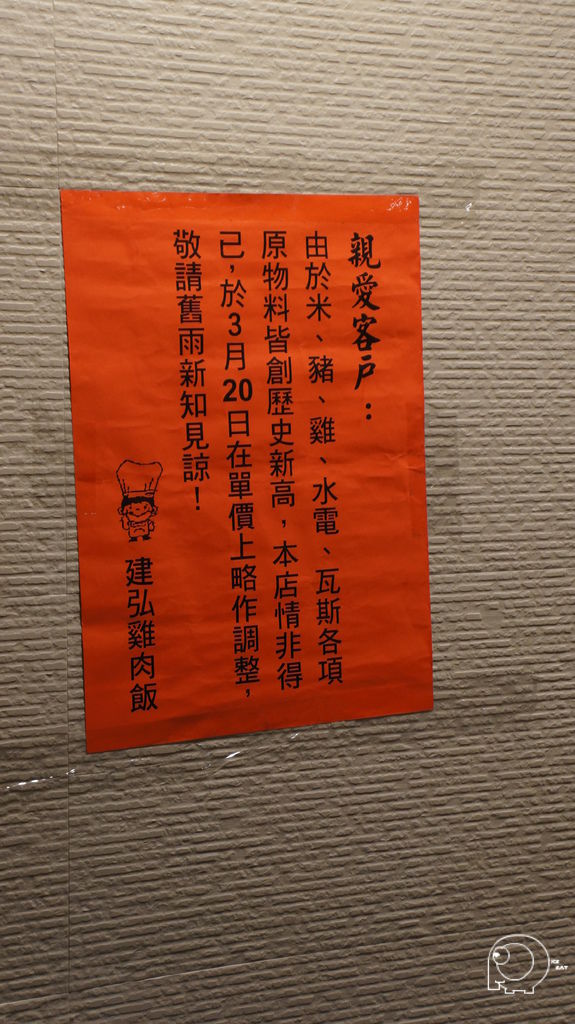 親愛客戶：
由於米、豬、雞、水電、瓦斯各項
原物料皆創歷史新高，本店情非得
已，於3月20日在單價上略作調整，
敬請舊雨新知見諒！
建弘雞肉飯
ICE
EAT